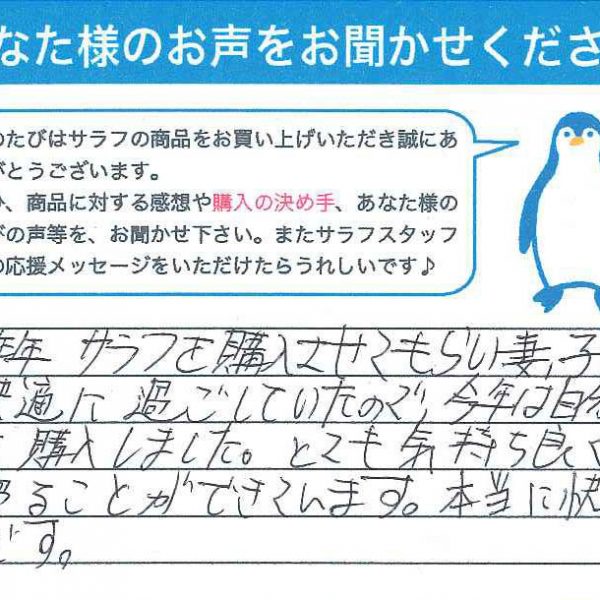 なた様のお声をお聞かせくださ
のたびはサラフの商品をお買い上げいただき誠にあ
がとうございます。
、商品に対する感想や購入の決め手、あなた様の
びの声等を、お聞かせ下さい。またサラフスタッフ
の応援メッセージをいただけたらうれしいです♪
昨年 サラフを購入させてもらい妻、子
快適に過ごしていたので、今年は自分
購入しました。とても気持ち良く
ることができています。本当に快
です。